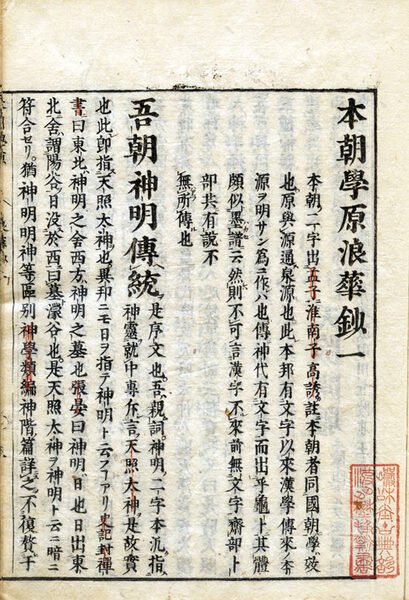 本朝學原浪華鈔一
本朝二字出孟子淮南子高誘註本朝者同國朝學效
也原與源通泉源也此本邦有文字以來漢學傳來本
源ヲ明サン為ニ作ハ也傳神代有文字而出乎龜卜其體
頗似墨譜云然則不可言漢字不來前無文字齋部卜
部共有說不
無所傳也
吾朝神明傳統 是序文也吾親詞神明二字本汎指
神靈就中專斥言天照太神是故實
也此即指天照太神也異邦ニモ日ヲ指テ神明ト云フアリ史記封禪
書曰東北神明之舍西方神明之墓也張晏曰神明日也日出東
北舍謂陽谷日沒於西曰墓濛谷也是天照太神ヲ神明ト云ニ暗ニ
符合セリ猶神明明神等區別神學類編神階篇詳之不復贅于